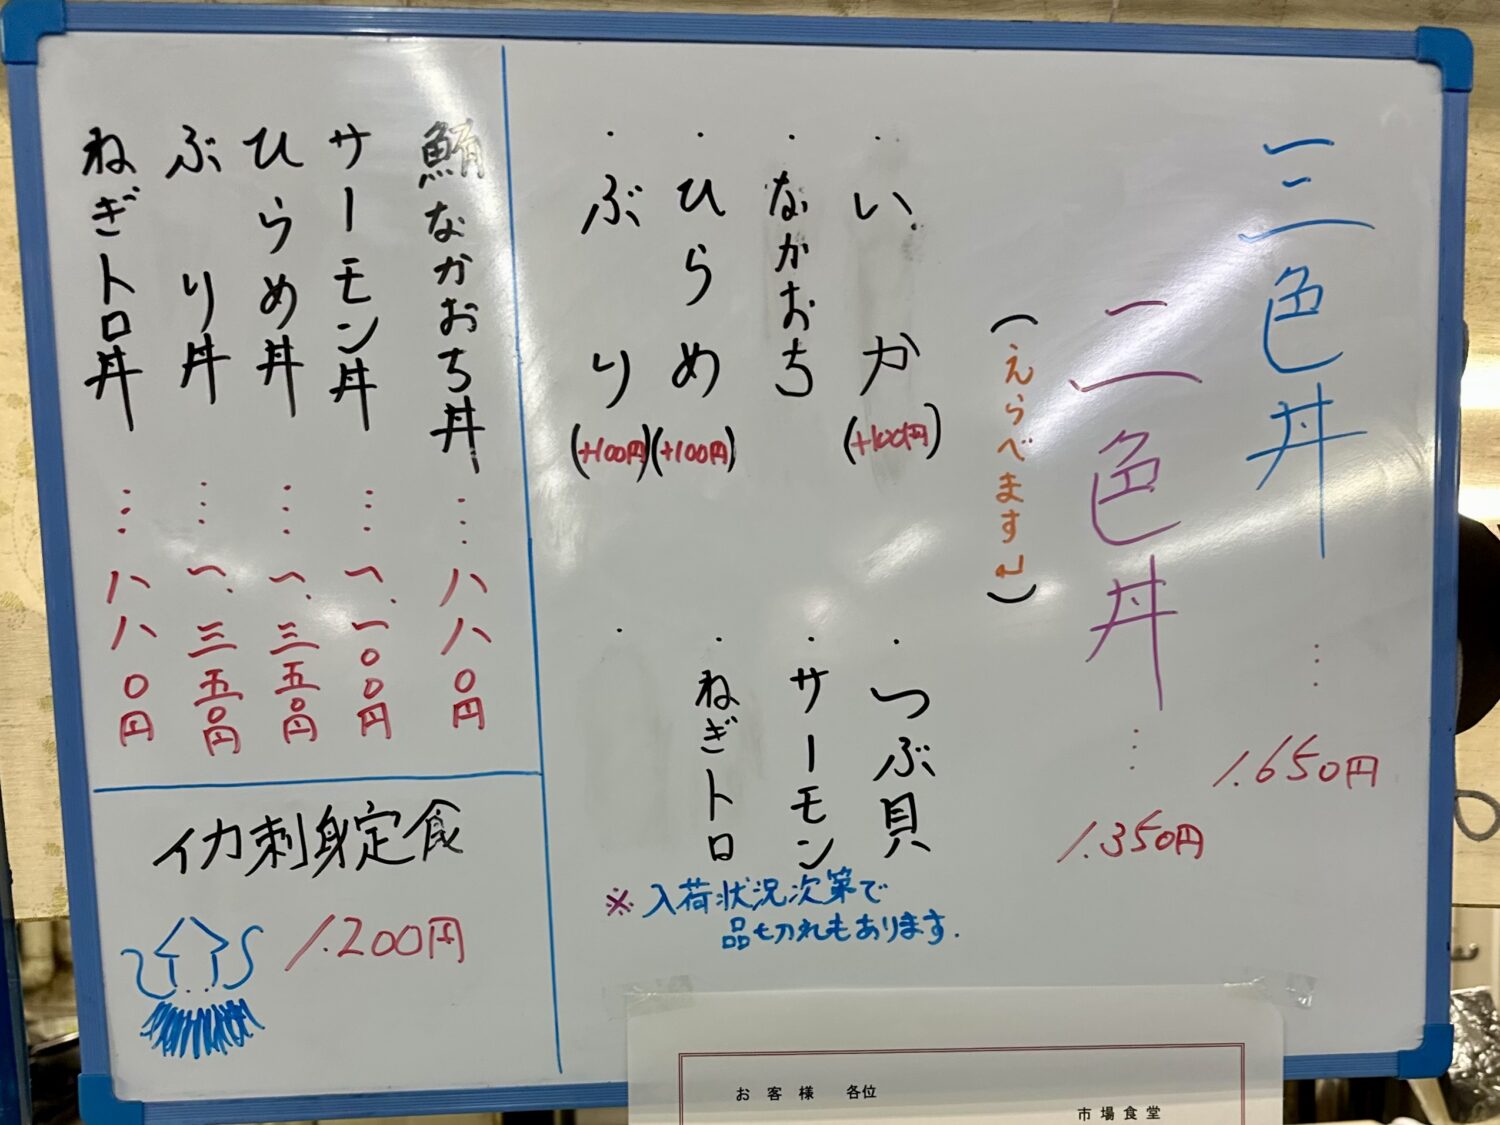 三色丼 … 1.650円
二色丼 … 1.350円
(えらべます↵)
・いか(+100円)
・なかおち
・ひらめ(+100円)
・ぶり(+100円)
・つぶ貝
・サーモン
・ねぎトロ
・
※入荷状況次第で
品切れもあります.
鮪なかおち丼…八八〇円
サーモン丼…一、一〇〇円
ひらめ丼…一、三五〇円
ぶり丼…一、三五〇円
ねぎトロ丼…八八〇円
イカ刺身定食
1.200円
お客様 各位
市場食堂